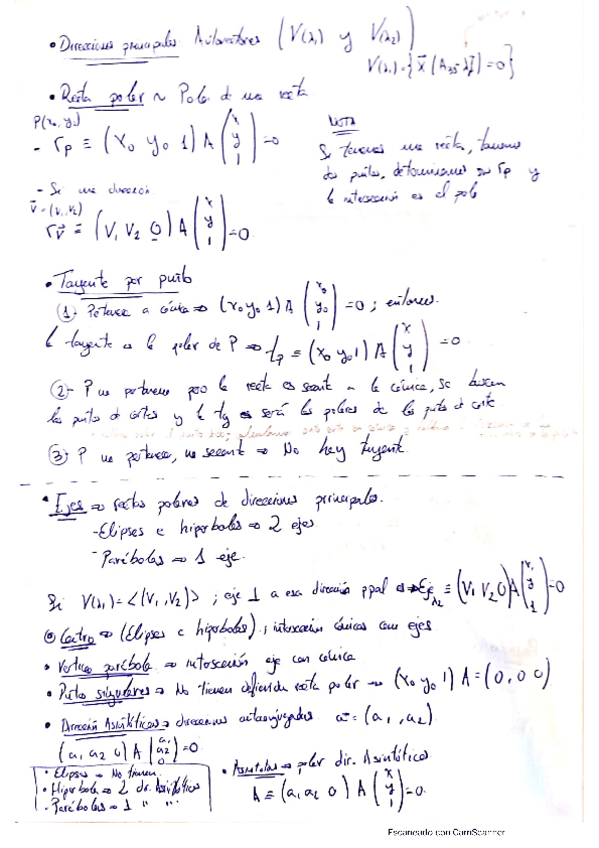 • Direcciones principales Autovectores (V(λ₁) y V(λ₂))
V(λ₁)={x̄(A₃₃-λI)=0}
• Recta polar ~ Polo de una recta
P(x₀,y₀)
- rp ≡ (x₀ y₀ 1) A (x y 1) =0
NOTA
Si tenemos una recta, tomamos
dos puntos, determinamos su rp y
la intersección es el polo
- Si una dirección
v̄=(v₁,v₂)
rv̄ ≡ (V₁ V₂ 0) A (x y 1) =0
• Tangente por punto
① Pertenece a cónica ⇒ (x₀ y₀ 1) A (x₀ y₀ 1) =0 ; entonces
la tangente es la polar de P ⇒ tp ≡ (x₀ y₀ 1) A (x y 1) =0
② P no pertenece pero la recta es secante a la cónica, se buscan
los puntos de cortes y la tg es será las polares de los puntos de corte
③ P no pertenece, no secante ⇒ No hay tangente
• Ejes ⇒ rectas polares de direcciones principales.
- Elipses e hipérbolas ⇒ 2 ejes
- Parábolas ⇒ 1 eje.
Si V(λ₁)=<(V₁,V₂)> ; eje ⊥ a esa dirección ppal ⇒ Eje λ₂ ≡ (V₁ V₂ 0) A (x y 1) =0
Centro ⇒ (Elipses e hipérbolas), intersección cónicas con ejes
• Vértice parábola ⇒ intersección eje con cónica
• Puntos singulares ⇒ No tienen definida recta polar ⇒ (x₀ y₀ 1) A = (0,0 0)
• Dirección Asintóticas ⇒ direcciones autoconjugadas ā=(a₁,a₂)
(a₁ a₂ 0) A (a₁ a₂ 0) =0
• Elipses ⇒ No tienen
• Hipérbola ⇒ 2 dir. Asintóticas
- Parábolas ⇒ 1 " "
• Asíntotas ⇒ polar dir. Asintótica
A ≡ (a₁ a₂ 0) A (x y 1) =0
Escaneado con CamScanner